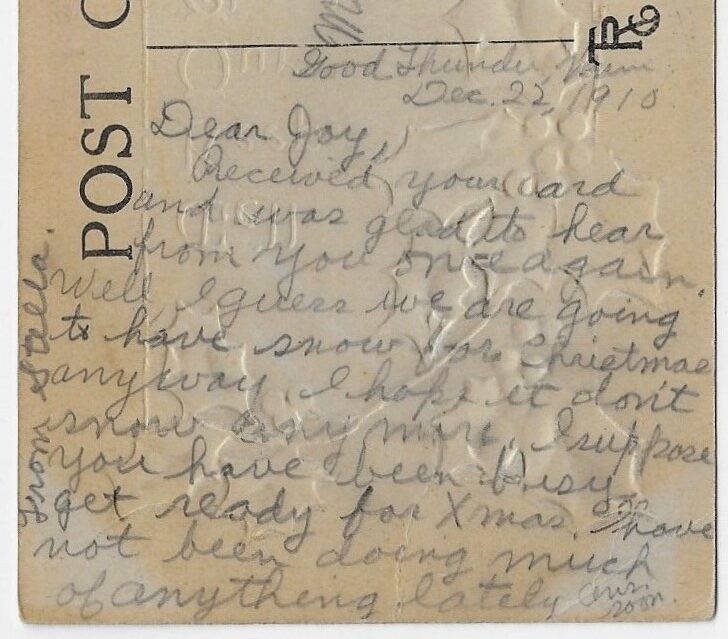 POST C
Good Thunder, Minn
Dec. 22, 1910
Dear Joy,
Received your card
and was glad to hear
from you once again.
Well, I guess we are going
to have snow for Christmas
anyway. I hope it don't
snow any more. I suppose
you have been busy
get ready for Xmas. I have
not been doing much
of anything lately
Ans.
soon.
From Stella.